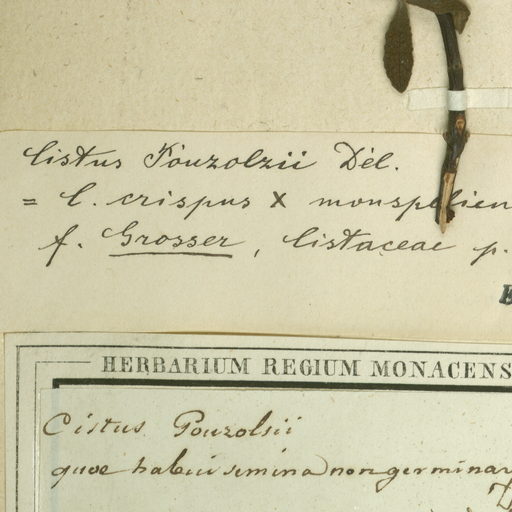 Cistus Pouzolzii Dél.
= C. crispus X monspelien
f. Grosser, Cistaceae p.
HERBARIUM REGIUM MONACENS
Cistus Pouzolsii
quae habui semina non germinar